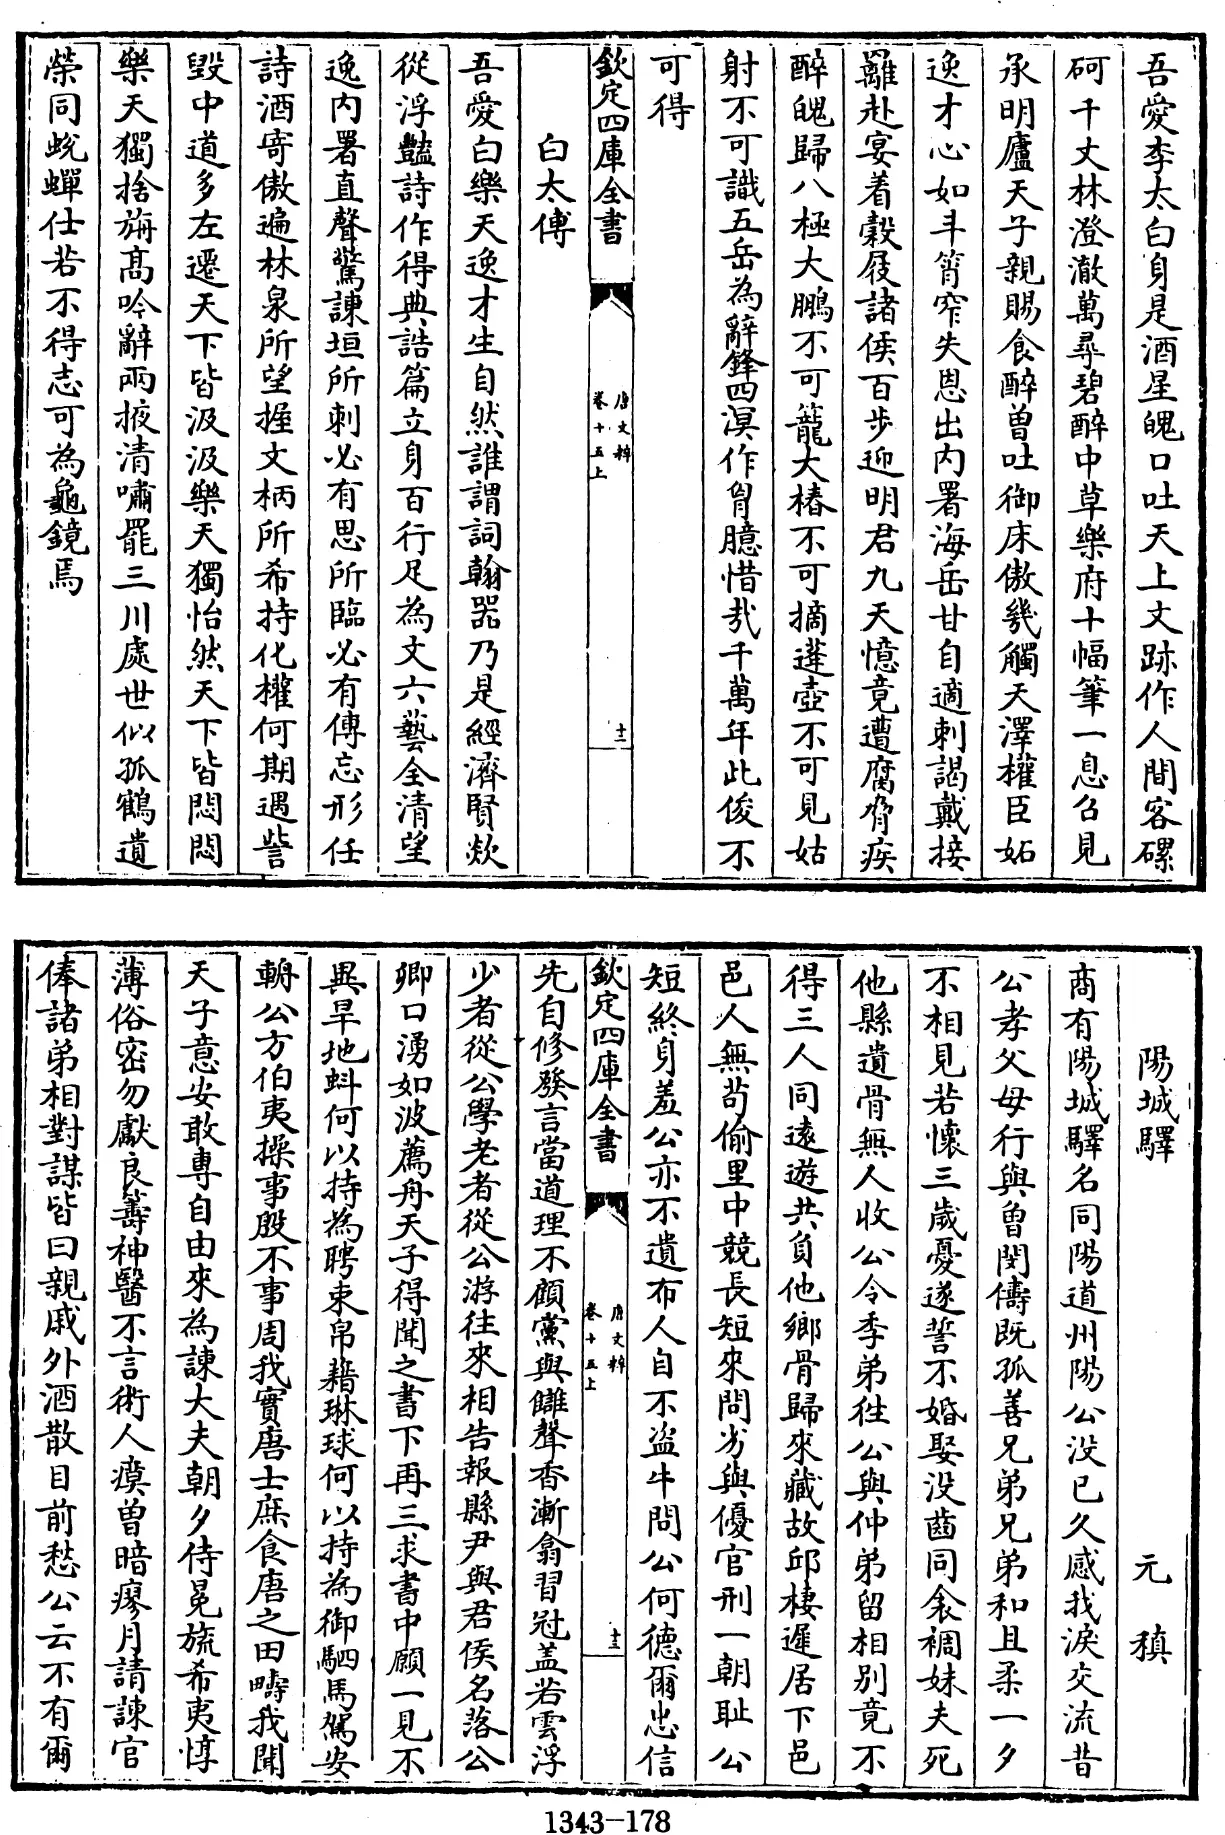 吾愛李太白身是酒星魄口吐天上文跡作人間客磥
砢千丈林澄澈萬尋碧醉中草樂府十幅筆一息召見
承明廬天子親賜食醉曾吐御床傲幾觸天澤權臣妬
逸才心如斗筲窄失恩出內署海岳甘自適刺謁戴接
䍦赴宴着縠屐諸侯百步迎明君九天憶竟遭腐脅疾
醉魄歸八極大鵬不可籠大椿不可摘蓬壺不可見姑
射不可識五岳為辭鋒四溟作胷臆惜㢤千萬年此俊不
可得
欽定四庫全書
唐文粹
卷十五上
十二
白太傅
吾愛白樂天逸才生自然誰謂詞翰器乃是經濟賢歘
從浮豔詩作得典誥篇立身百行足為文六藝全清望
逸內署直聲驚諫垣所刺必有思所臨必有傳忘形任
詩酒寄傲遍林泉所望握文柄所希持化權何期遇訾
毀中道多左遷天下皆汲汲樂天獨怡然天下皆悶悶
樂天獨捨旃高吟辭兩掖清嘯罷三川處世似孤鶴遺
榮同蛻蟬仕若不得志可為龜鏡焉
陽城驛
元稹
商有陽城驛名同陽道州陽公没已久感我淚交流昔
公孝父母行與曾閔儔既孤善兄弟兄弟和且柔一夕
不相見若懷三歲憂遂誓不婚娶没齒同衾裯妹夫死
他縣遺骨無人收公令季弟徃公與仲弟留相別竟不
得三人同遠遊共負他鄉骨歸來藏故邱棲遲居下邑
邑人無苟偷里中競長短來問劣與優官刑一朝耻公
短終身羞公亦不遺布人自不盜牛問公何德爾忠信
欽定四庫全書
唐文粹
卷十五上
十三
先自修發言當道理不顧黨與讎聲香漸翕習冠蓋若雲浮
少者從公學老者從公游往來相告報縣尹與君侯名落公
卿口湧如波薦舟天子得聞之書下再三求書中願一見不
異旱地蚪何以持為聘束帛藉琳球何以持為御駟馬駕安
輈公方伯夷操事殷不事周我實唐士庶食唐之田疇我聞
天子意安敢專自由來為諫大夫朝夕侍冕旒希夷惇
薄俗密勿獻良籌神醫不言術人瘼曾暗瘳月請諫官
俸諸弟相對謀皆曰親戚外酒散目前愁公云不有爾
1343-178